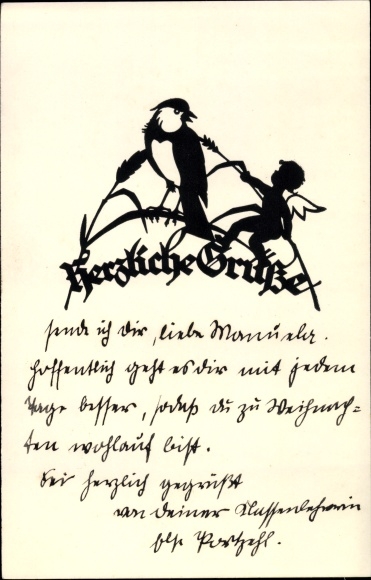 Herzliche Grüße
sende ich dir, liebe Manuela.
Hoffentlich geht es dir mit jedem
Tage besser, sodaß du zu Weihnach=
ten wohlauf bist.
Sei herzlich gegrüßt
von deiner Klassenlehrerin
Else Portzehl.